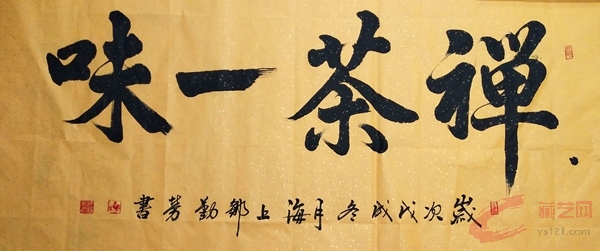 禅茶一味
岁次戊戌冬月海上邹勤芳書
藏艺网
ys121.com